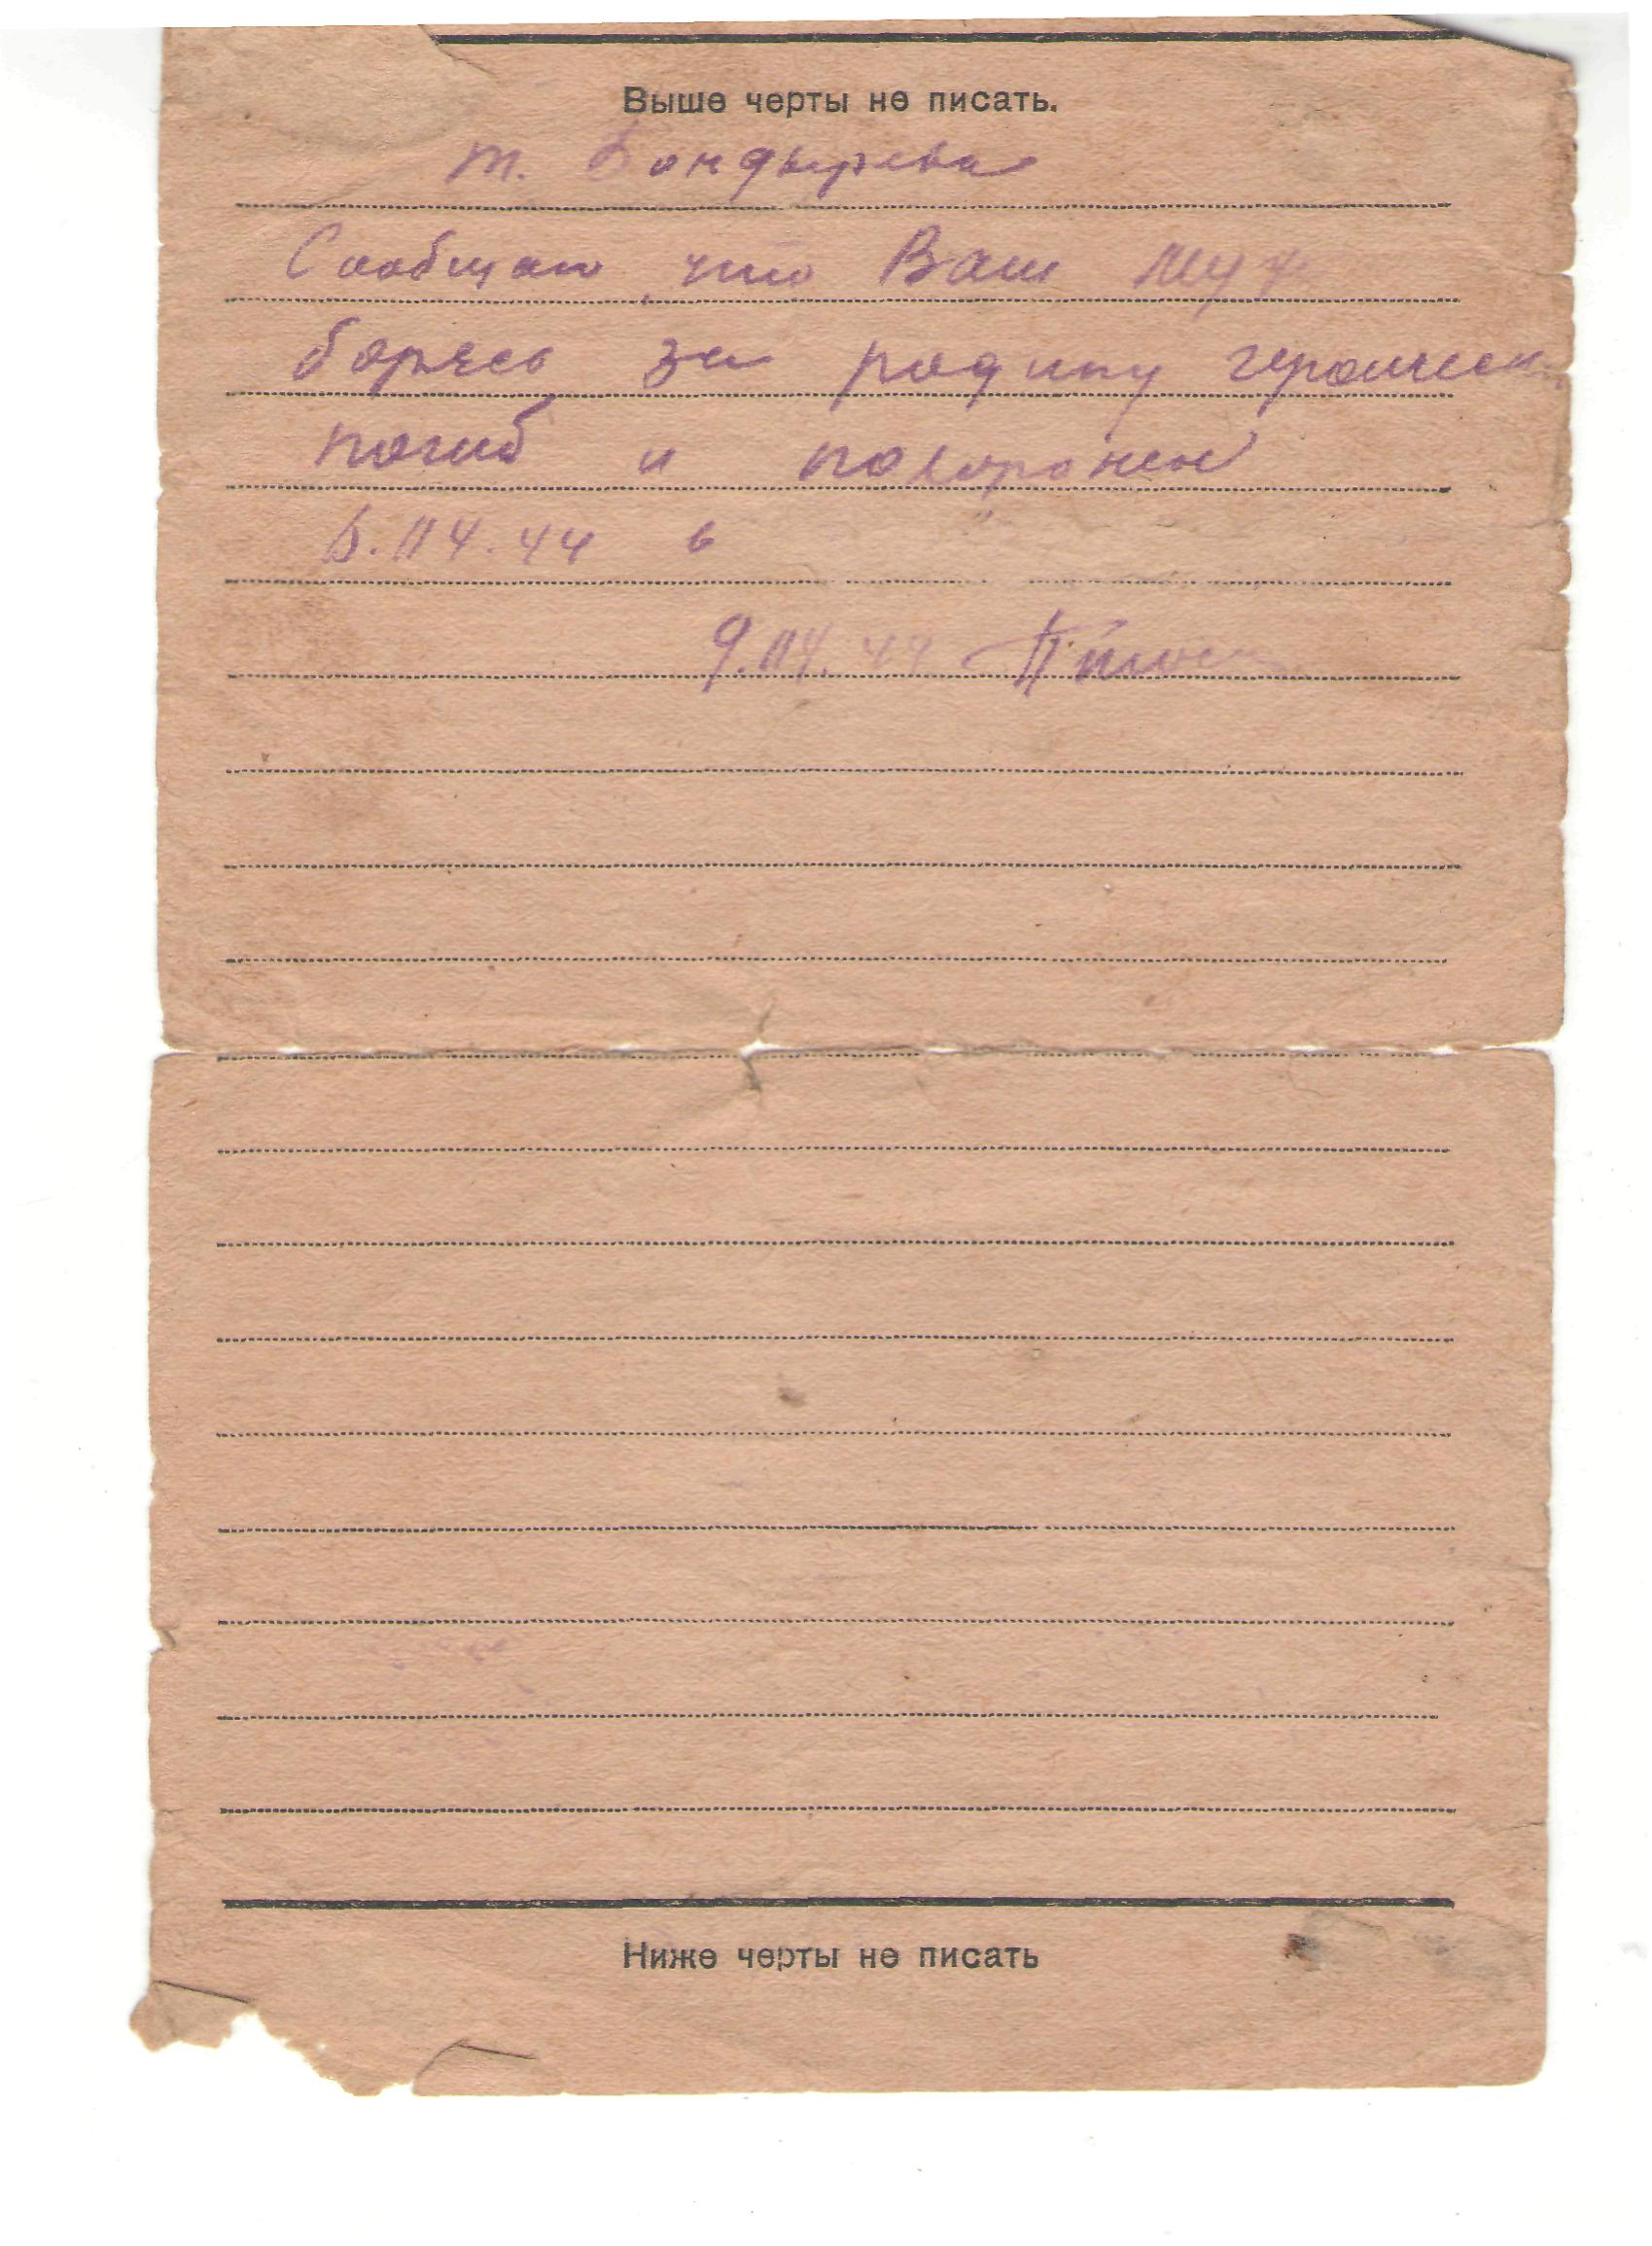 Выше черты не писать.
т. Бондырева
Сообщаю, что Ваш муж
борясь за родину героическ
погиб и похоронен
6.04.44 в
9.04.44
Ниже черты не писать